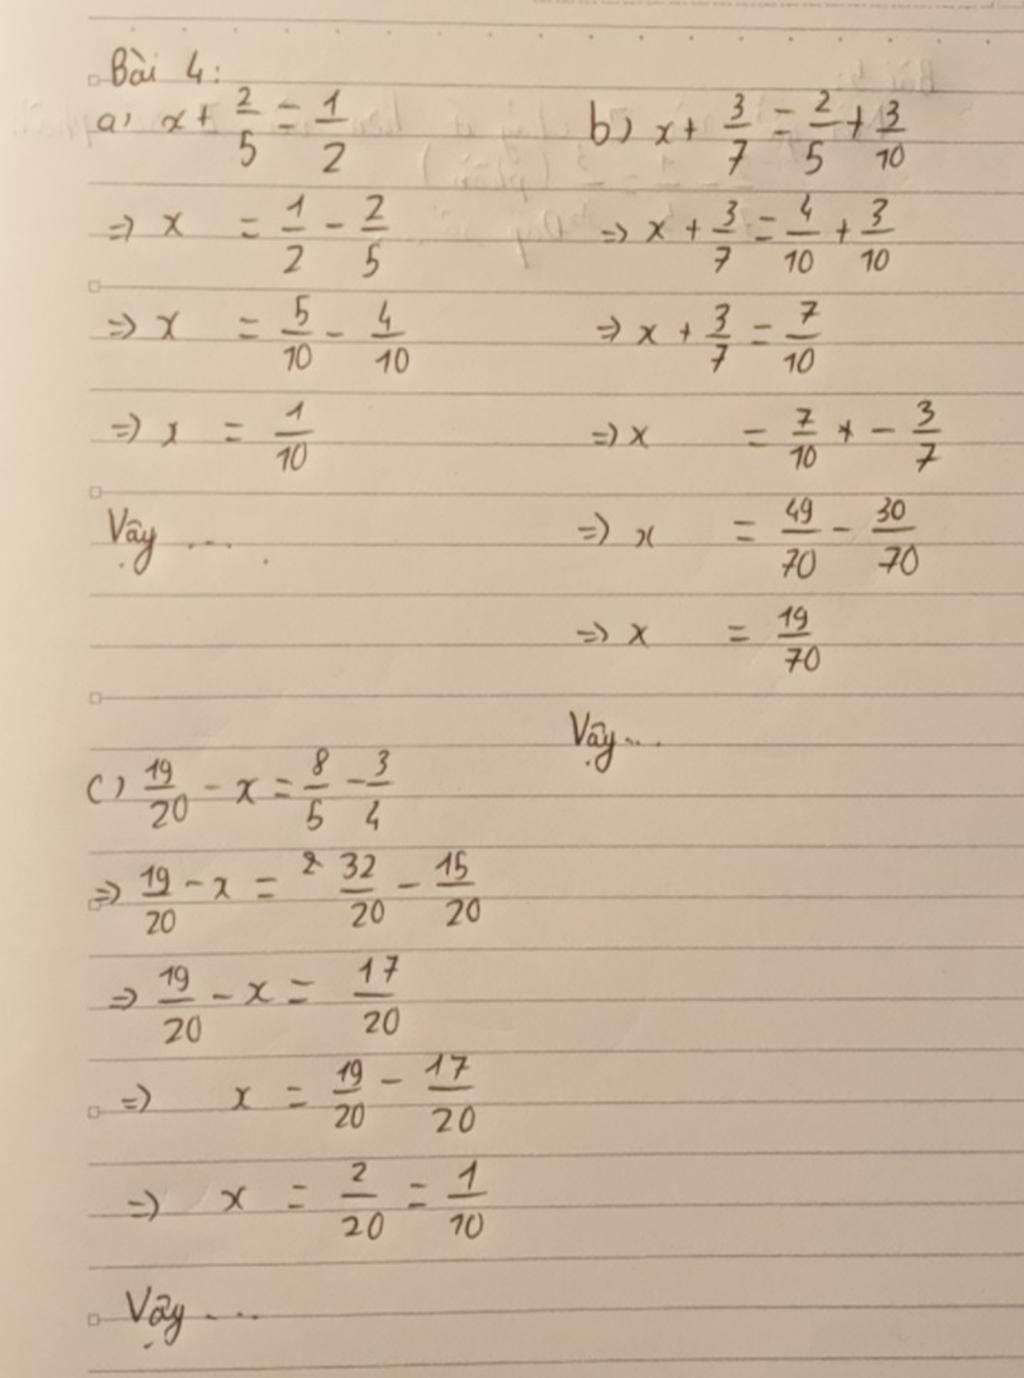 Bài 4:
a, x + 2/5 = 1/2
=> x = 1/2 - 2/5
=> x = 5/10 - 4/10
=> x = 1/10
Vậy ...
b) x + 3/7 = 2/5 + 3/10
=> x + 3/7 = 4/10 + 3/10
=> x + 3/7 = 7/10
=> x = 7/10 - 3/7
=> x = 49/70 - 30/70
=> x = 19/70
Vậy ...
c) 19/20 - x = 8/5 - 3/4
=> 19/20 - x = 32/20 - 15/20
=> 19/20 - x = 17/20
=> x = 19/20 - 17/20
=> x = 2/20 = 1/10
Vậy ...